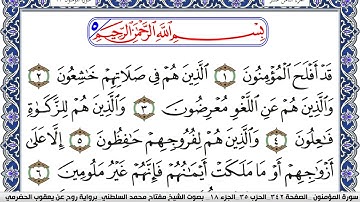 بِسْمِ ٱللَّهِ ٱلرَّحْمَٰنِ ٱلرَّحِيمِ
قَدْ أَفْلَحَ ٱلْمُؤْمِنُونَ ١ ٱلَّذِينَ هُمْ فِي صَلَاتِهِمْ خَٰشِعُونَ ٢
وَٱلَّذِينَ هُمْ عَنِ ٱللَّغْوِ مُعْرِضُونَ ٣ وَٱلَّذِينَ هُمْ لِلزَّكَوٰةِ
فَٰعِلُونَ ٤ وَٱلَّذِينَ هُمْ لِفُرُوجِهِمْ حَٰفِظُونَ ٥ إِلَّا عَلَىٰ
أَزْوَٰجِهِمْ أَوْ مَا مَلَكَتْ أَيْمَٰنُهُمْ فَإِنَّهُمْ غَيْرُ مَلُومِينَ ٦
سورة المؤمنون . الصفحة ٣٤٢ الحزب ٣٥ الجزء ١٨ . بصوت الشيخ مفتاح محمد السلطني برواية روح عن يعقوب الحضرمي